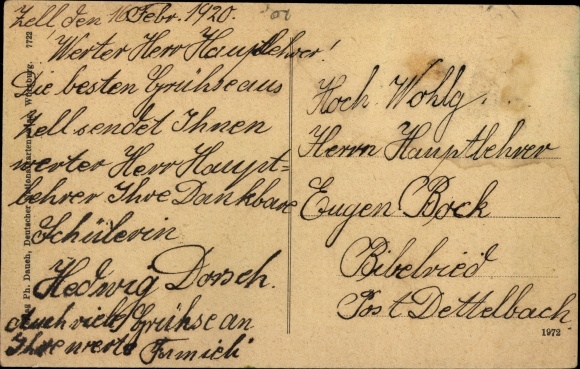 Zell, den 16. Febr. 1920.
Werter Herr Hauptlehrer!
Die besten Grühse aus
Zell sendet Ihnen
werter Herr Haupt=
lehrer Ihre Dankbare
Schülerin
Hedwig Dorsch.
Auch viele Grühse an
Ihre werte Famieli
Hoch. Wohlg...
Herrn Hauptlehrer
Eugen Bock
Bibelried
Post Dettelbach
Ph. Dauch, Deutscher Würzburg. 7722
1972